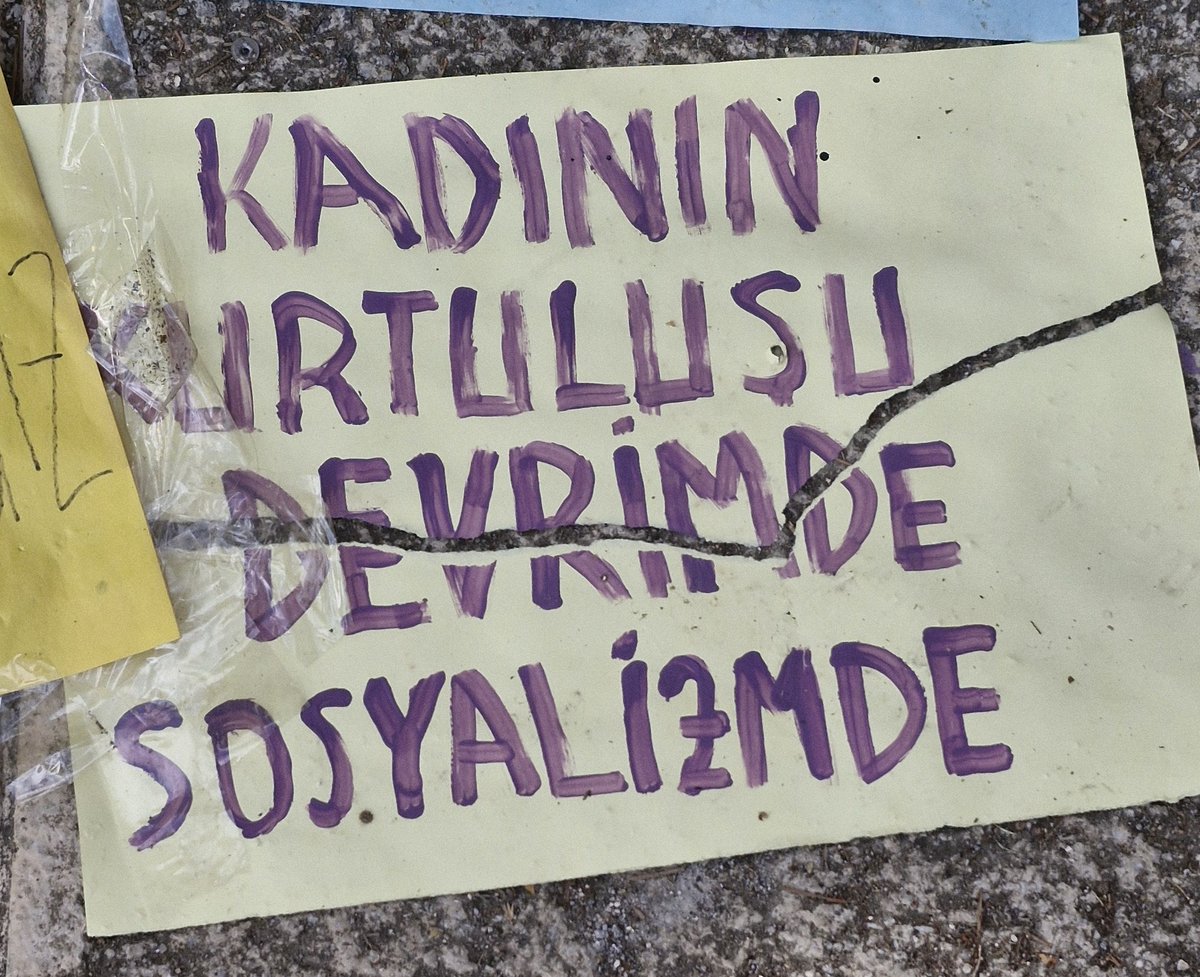 KADININ
KURTULUŞU
DEVRİMDE
SOSYALİZMDE